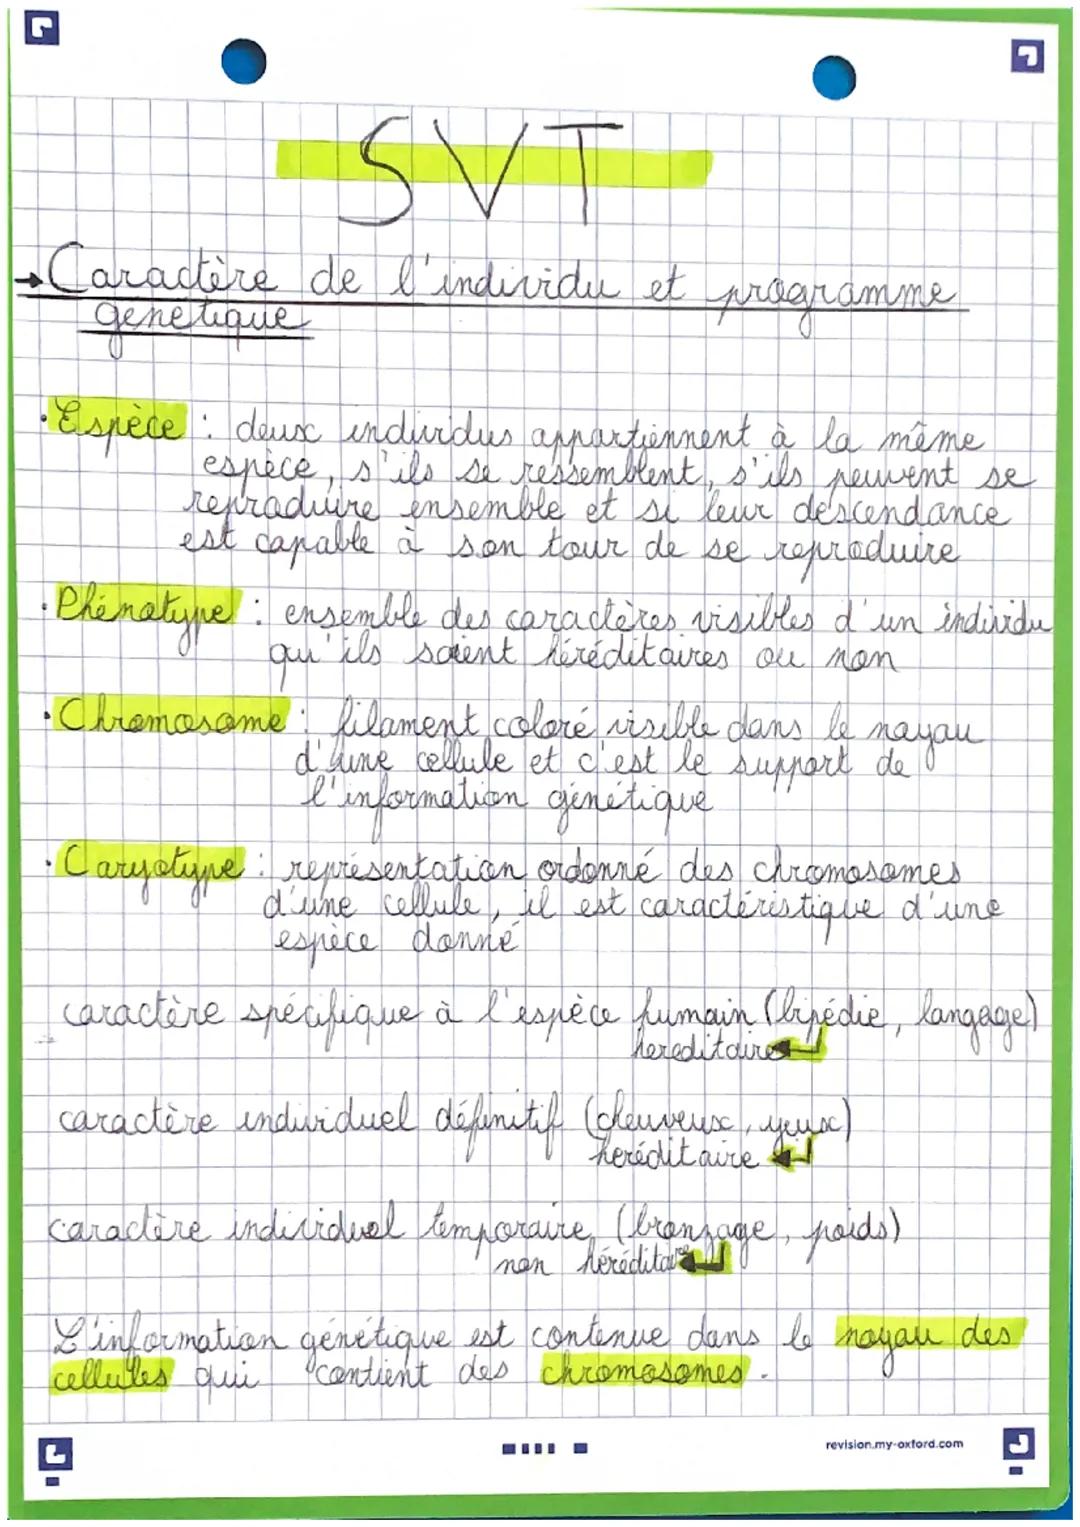 SVT
→ Caractère de l'individu et programme
génétique
· Espèce : deux individus appartiennent à la même
espèce, s'ils se ressemblent, s'ils peuvent se
reproduire ensemble et si leur descendance
est capable à son tour de se reproduire
· Phénotype : ensemble des caractères visibles d'un individu
qu'ils soient héréditaires ou non
· Chromosome : filament coloré visible dans le noyau
d'une cellule et c'est le support de
l'information génétique
· Caryotype : représentation ordonné des chromosomes
d'une cellule, il est caractéristique d'une
espèce donné
caractère spécifique à l'espèce humain (bipédie, langage)
hereditaire
caractère individuel définitif (cheuveux, yeux)
heréditaire
caractère individuel temporaire (bronzage, poids)
non héréditaire
L'information génétique est contenue dans le noyau des
cellules qui contient des chromosomes.
revision.my-oxford.com